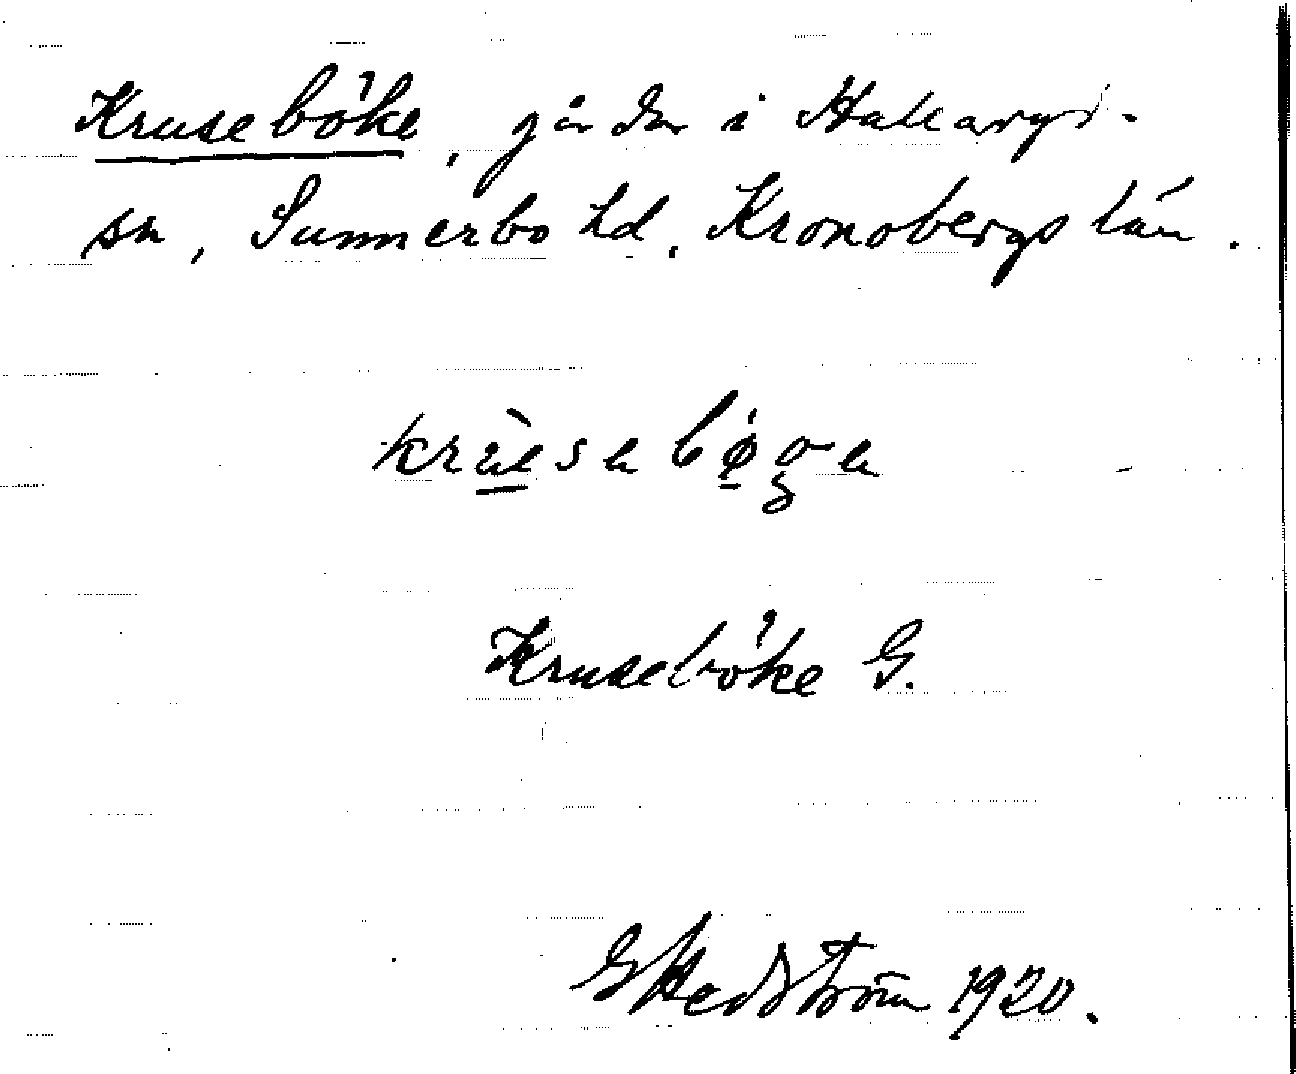 Kruseböke, gårdar i Hallaryds
sn, Sunnerbo hd, Kronobergs län.
Kruseböke G.
G Hedström 1920.